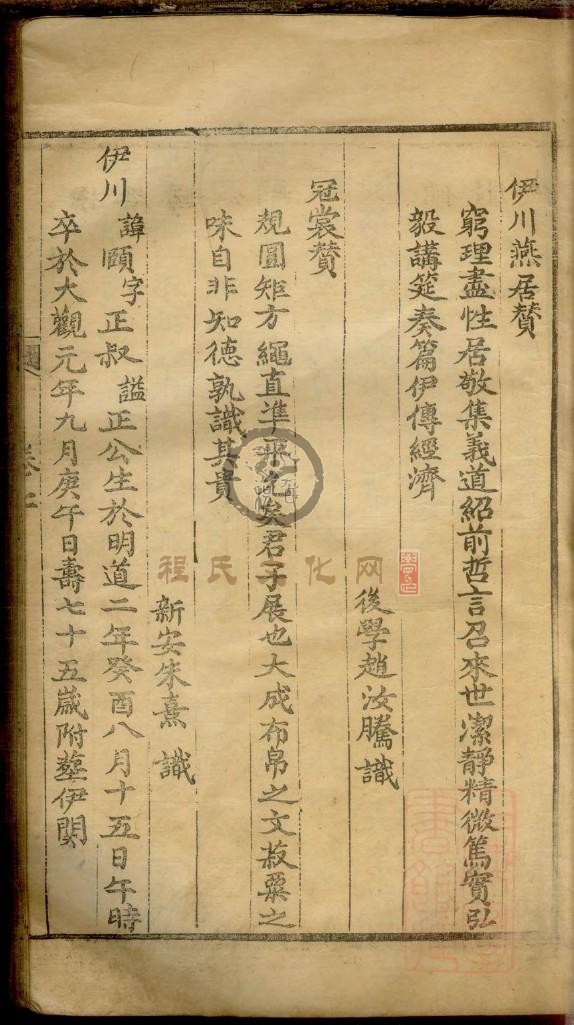 伊川燕居贊
窮理盡性居敬集義道紹前哲言召來世潔靜精微篤實弘
毅講筵奏篇伊傳經濟
後學趙汝騰識
冠裳贊
規圓矩方繩直準平允矣君子展也大成布帛之文菽粟之
味自非知德孰識其貴
新安朱熹識
伊川 諱頤字正叔諡正公生於明道二年癸酉八月十五日午時
卒於大觀元年九月庚午日壽七十五歲附塟伊闕
程氏文化网